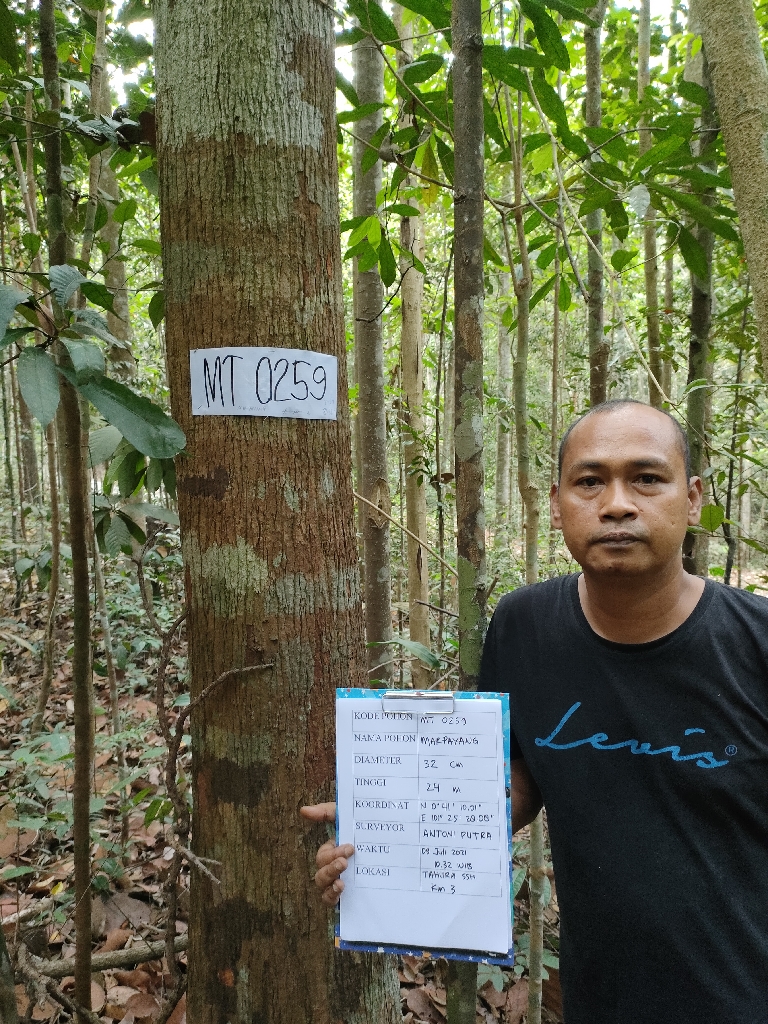 MT 0259
KODE POHON MT 0259
NAMA POHON MARPAYANG
DIAMETER 32 cm
TINGGI 24 m
KOORDINAT N 0° 41' 10.01"
E 101° 25' 28.08"
SURVEYOR ANTONI PUTRA
WAKTU 09 Juli 2021
10.32 WIB
LOKASI TAHURA SSH
Km 3
Levis®